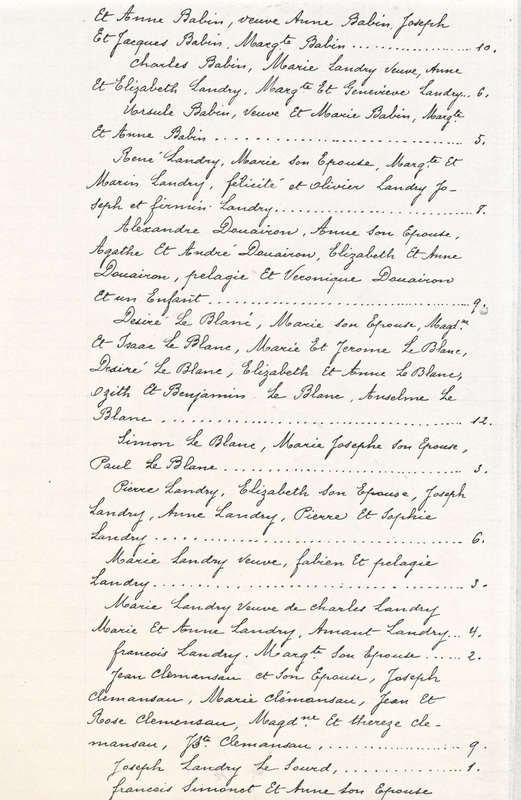 Et Anne Babin, veuve Anne Babin, Joseph
Et Jacques Babin, Margte Babin .................. 10.
Charles Babin, Marie Landry Veuve, Anne
Et Elizabeth Landry, Margte Et Genevieve Landry.. 6.
Ursule Babin, Veuve Et Marie Babin, Margte
Et Anne Babin .................. 5.
René Landry, Marie son Epouse, Margte Et
Marin Landry, félicité et Olivier Landry Jo-
seph et firmin Landry .................. 8.
Alexandre Douairon, Anne son Epouse,
Agathe Et André Douairon, Elizabeth Et Anne
Douairon, pelagie Et Veronique Douairon
Et un Enfant .................. 9.
Desiré Le Blanc, Marie son Epouse, Magdne
Et Isaac Le Blanc, Marie Et Jerome Le Blanc,
Desiré Le Blanc, Elizabeth Et Anne Le Blanc,
Ozith Et Benjamin Le Blanc, Anselme Le
Blanc .................. 12.
Simon Le Blanc, Marie Josephe son Epouse,
Paul Le Blanc .................. 3.
Pierre Landry, Elizabeth Son Epouse, Joseph
Landry, Anne Landry, Pierre Et Sophie
Landry .................. 6.
Marie Landry Veuve, fabien Et pelagie
Landry .................. 3.
Marie Landry Veuve de Charles Landry
Marie Et Anne Landry, Amant Landry... 4.
francois Landry, Margte Son Epouse ...... 2.
Jean Clemansau et Son Epouse, Joseph
Clemansau, Marie Clémansau, Jean Et
Rose Clemensau, Magdne Et thereze cle-
mansau, Jbte Clemansau, .................. 9.
Joseph Landry Le Sourd, .................. 1.
francois Simonet Et Anne son Epouse